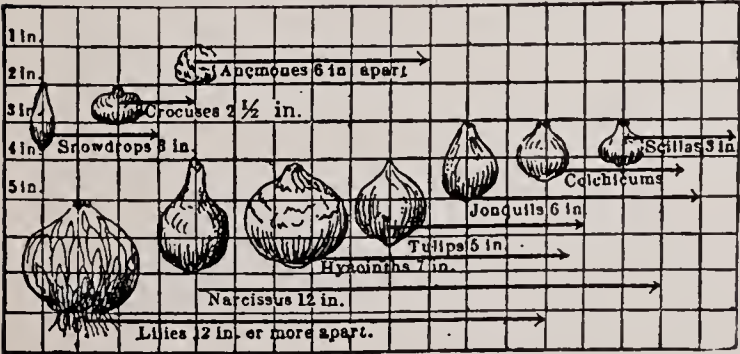 1 in.
2 in.
3 in.
4 in.
5 in.
Anemones 6 in apart
Crocuses 2 ½ in.
Snowdrops 3 in.
Scillas 3 in
Colchicums
Jonquils 6 in
Tulips 5 in
Hyacinths 7 in.
Narcissus 12 in.
Lilies 12 in. or more apart.